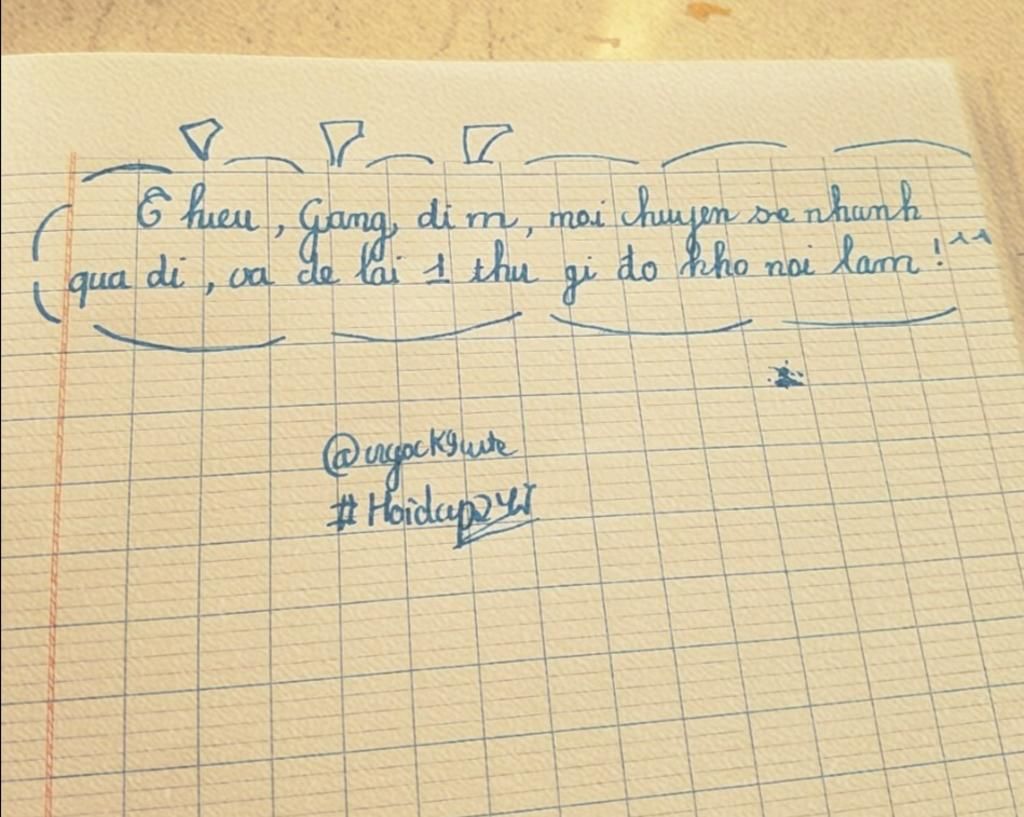 G hieu, Gang, di m, moi chuyen se nhanh
qua di, va de lai 1 thu gi do kho noi lam! ^^
@ngock9cute
#Hoidap247